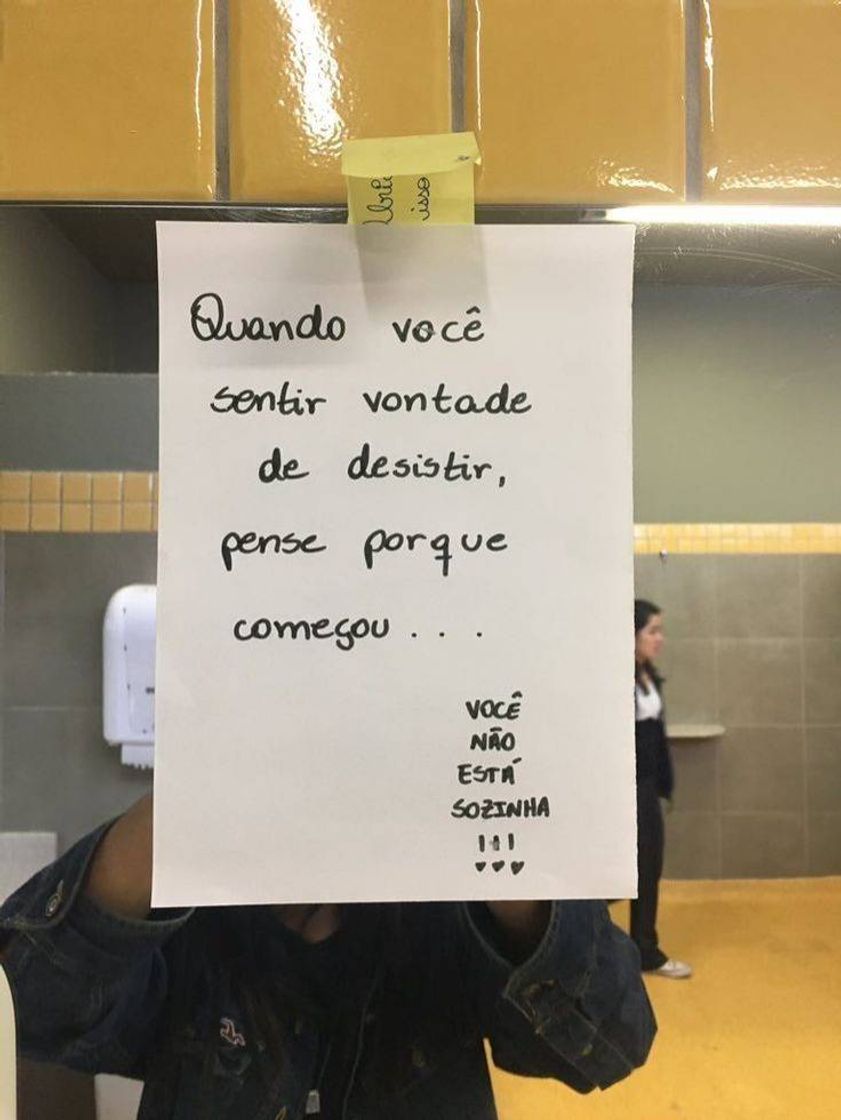 isso
Quando você
sentir vontade
de desistir,
pense porque
começou...
VOCÊ
NÃO
ESTÁ
SOZINHA
!!!
♥♥♥